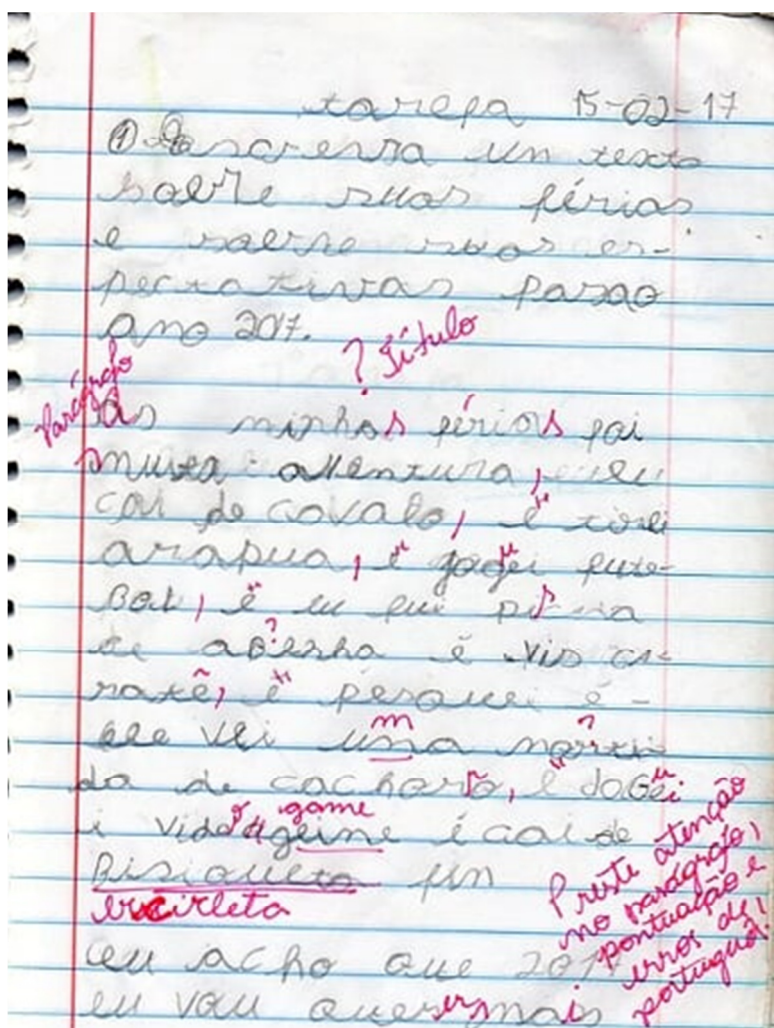 tarefa 15-02-17
① Escreva un texto
sobre suas férias
e sobre suas es-
pectativas para o
ano 2017.
? Título
Parágrafo
As minhas férias foi
muita aventura, eu
cai de cavalo, é
arapua, é joguei fute-
Bol, é eu fui
de é vis
é pesquei é
vei uma
da de cachoro, é joguei
i vido game geime é cai de
Bisicleta fin
bicicleta
Preste atenção
no parágrafo,
pontuação e
erros de
português!
eu acho que
eu vou mais